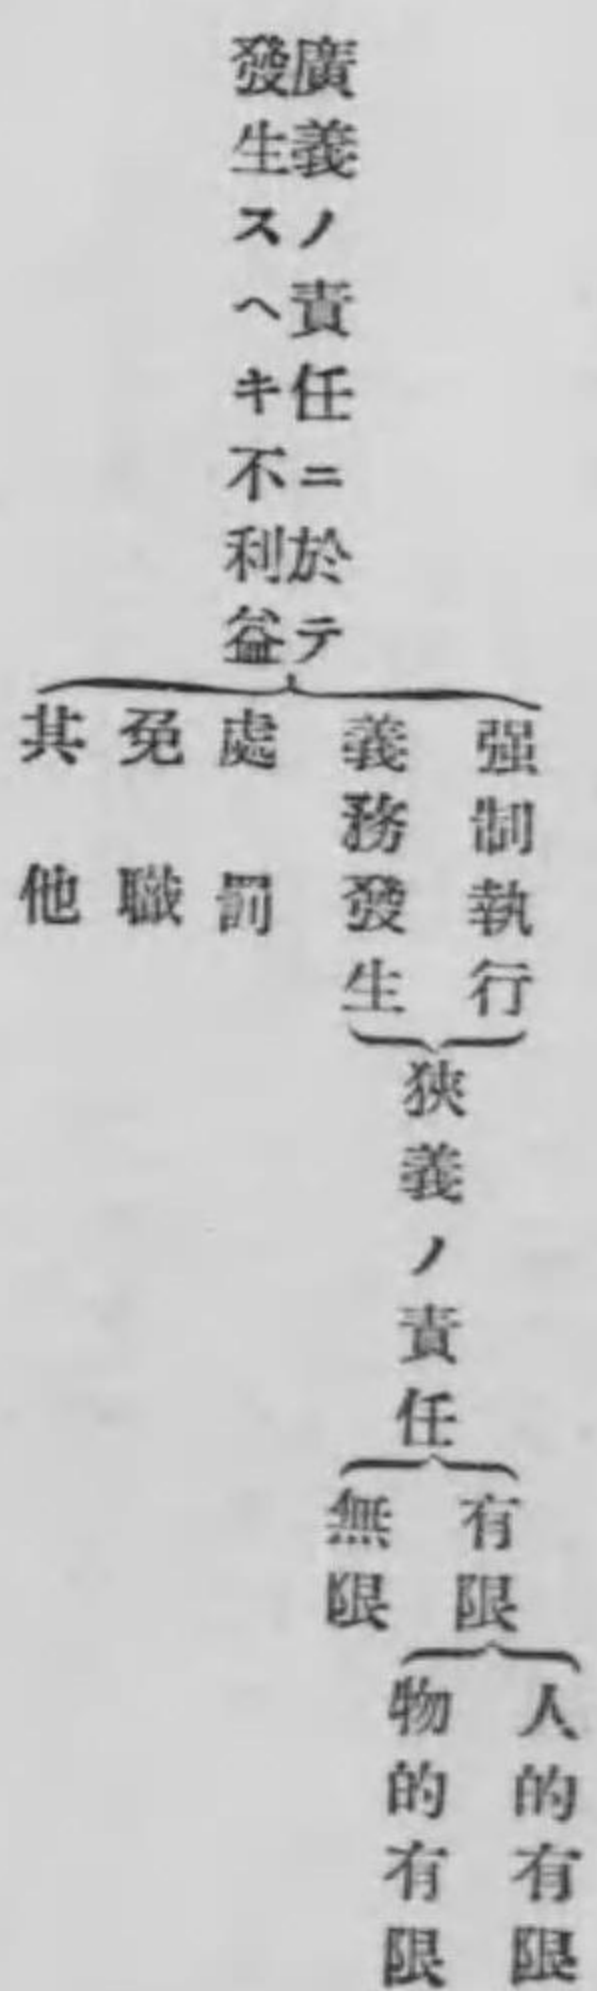 廣義ノ責任ニ於テ
發生スヘキ不利益
强制執行
義務發生
處罰
免職
其他
狹義ノ責任
有限
無限
人的有限
物的有限